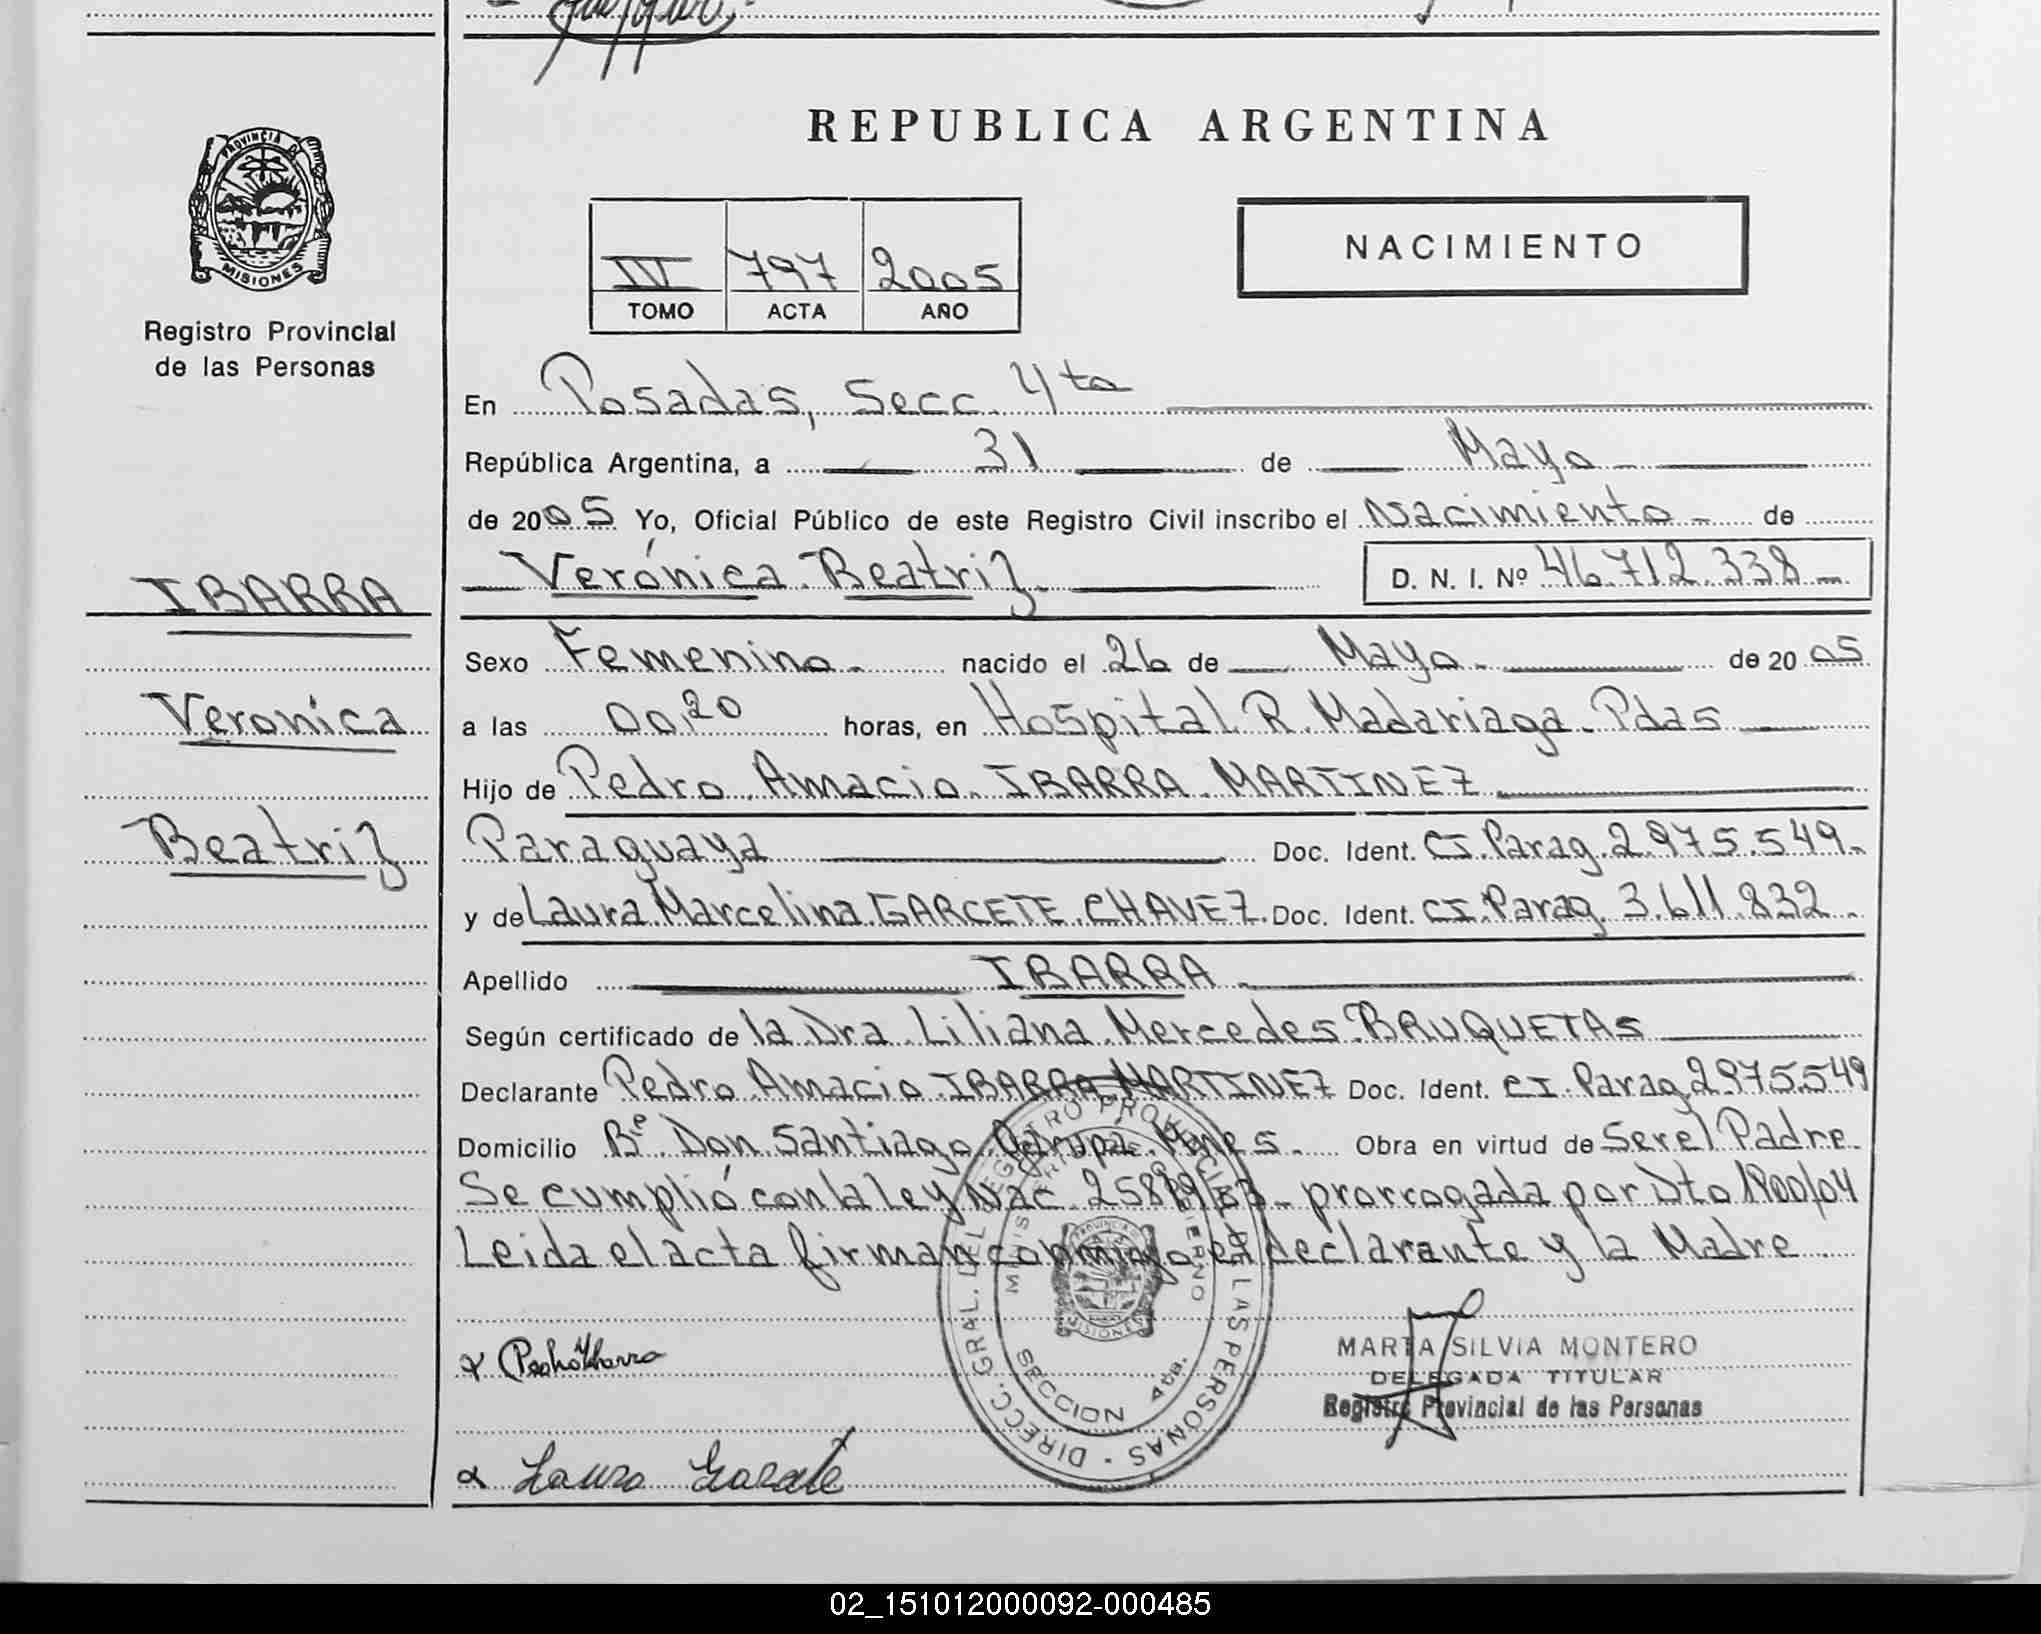 REPUBLICA ARGENTINA
PROVINCIA D
MISIONES
Registro Provincial
de las Personas
IV 797 2005
TOMO ACTA AÑO
NACIMIENTO
En Posadas, Secc. 4ta
República Argentina, a 31 de Mayo
de 2005 Yo, Oficial Público de este Registro Civil inscribo el Nacimiento de
Verónica Beatriz D. N. I. Nº 46.712.338
IBARRA
Veronica
Beatriz
Sexo Femenino nacido el 26 de Mayo de 2005
a las 00,20 horas, en Hospital R. Madariaga. Pdas
Hijo de Pedro Amacio IBARRA MARTINEZ
Paraguaya Doc. Ident. CI. Parag. 2.975.549.
y de Laura Marcelina GARCETE CHAVEZ. Doc. Ident. CI. Parag. 3.611.832.
Apellido IBARRA
Según certificado de la Dra. Liliana Mercedes BRUQUETAS
Declarante Pedro Amacio IBARRA MARTINEZ Doc. Ident. CI. Parag. 2.975.549
Domicilio Bº Don Santiago Garupá. Mnes. Obra en virtud de Ser el Padre.
Se cumplió con la Ley Nac. prorrogada por Dto 1900/04
Leida el acta firman conmigo el declarante y la Madre.
Pedro Ibarra
Laura Garcete
DIRECC. GRAL. DEL REGISTRO PROVINCIAL DE LAS PERSONAS
SECCION 4ta.
MISIONES
MARTA SILVIA MONTERO
DELEGADA TITULAR
Registro Provincial de las Personas
02_151012000092-000485